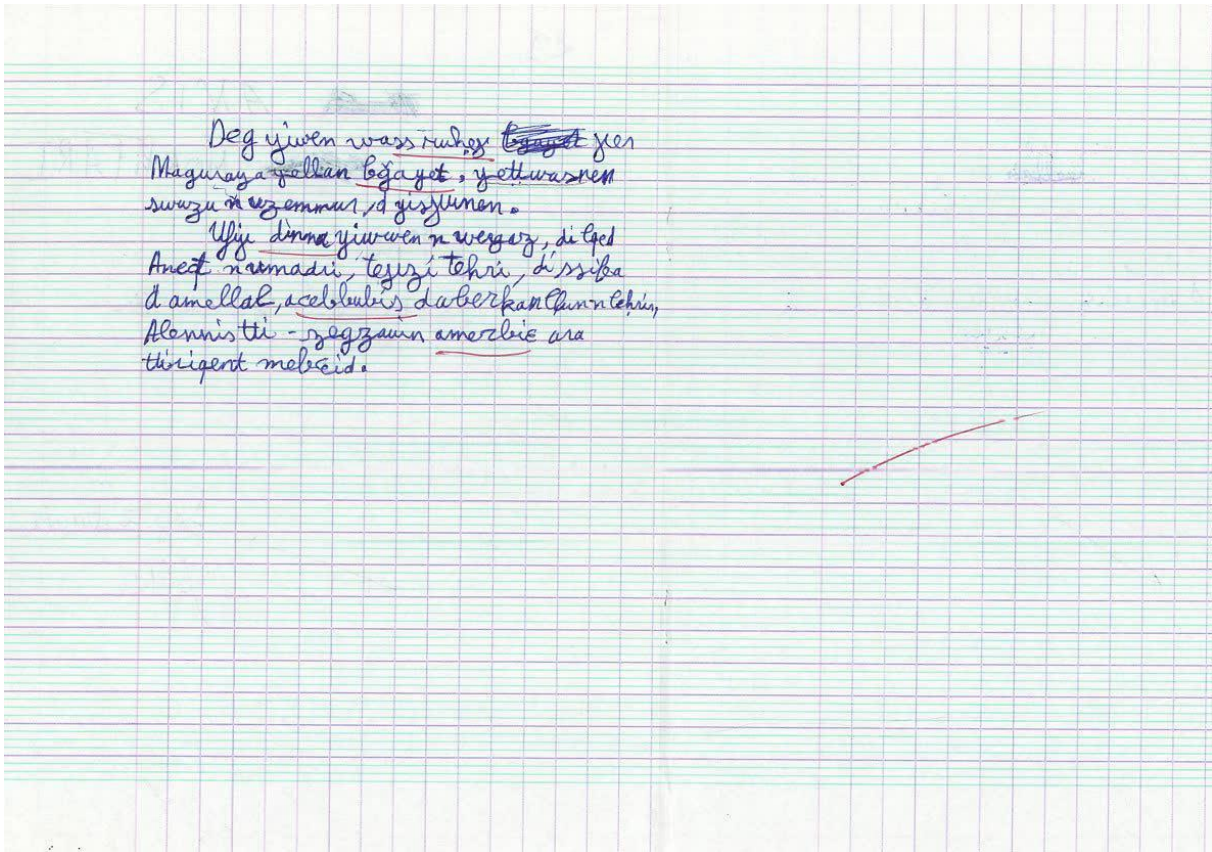 Deg yiwen wass ruheɣ ɣer
Maguraya yellan bǧayet, yettwasnen
swazu n uzemmur, d yisɣunen.
Ufiɣ dinna yiwwen n wergaz, di lqed
Anect n umadi, teɣezi tehri, di ssifa
d amellal, acebbubis d aberkan llun n lehris,
Alennis tti-zegzawin amerbiɛ ara
ttiriqent mebɛid.